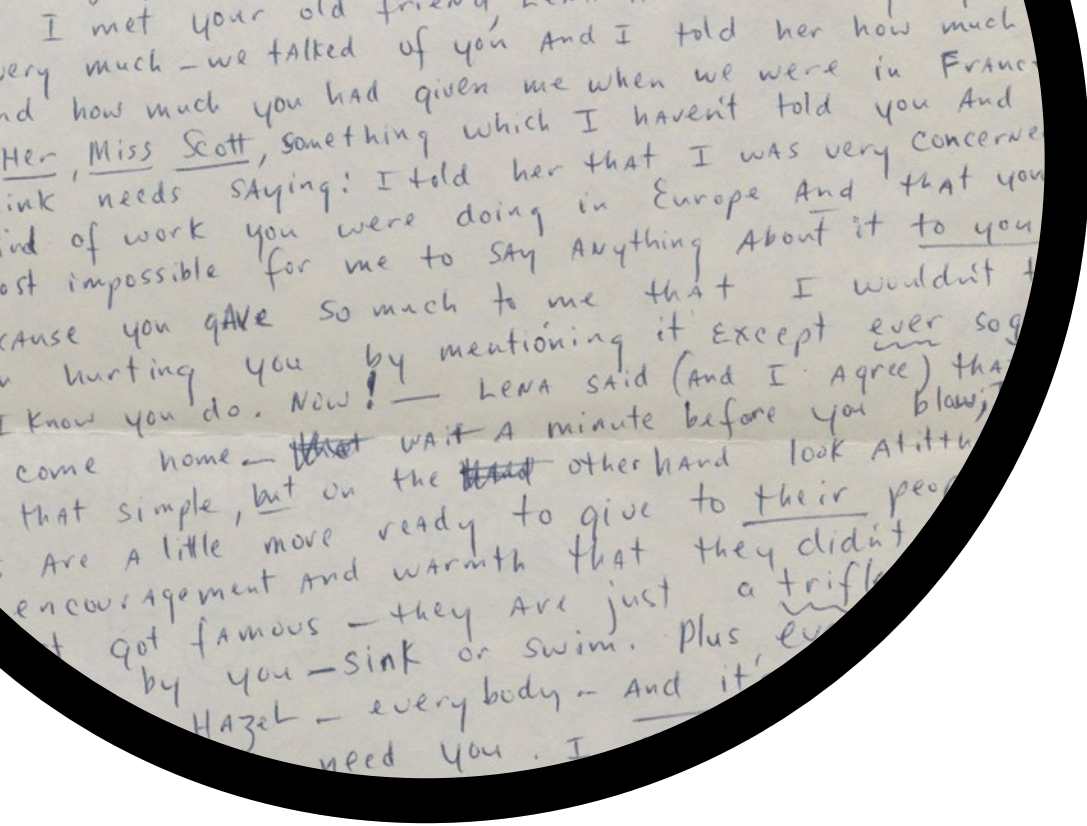 I met your old friend,
very much – we talked of you And I told her how much
nd how much you had given me when we were in Franc
Her, Miss Scott, something which I haven't told you And
ink needs saying: I told her that I was very concerne
ind of work you were doing in Europe And that you
ost impossible for me to say Anything About it to you
cause you gave so much to me that I wouldn't t
n hurting you by mentioning it except ever so g
I know you do. Now! — Lena said (And I Agree) tha
come home – wait A minute before you blow;
that simple, but on the other hand look At it th
s Are A little more ready to give to their peop
encouragement And warmth that they didn't
t got famous – they Are just a trifle
by you – sink or swim. Plus ev
Hazel – everybody – And it'
need you. I